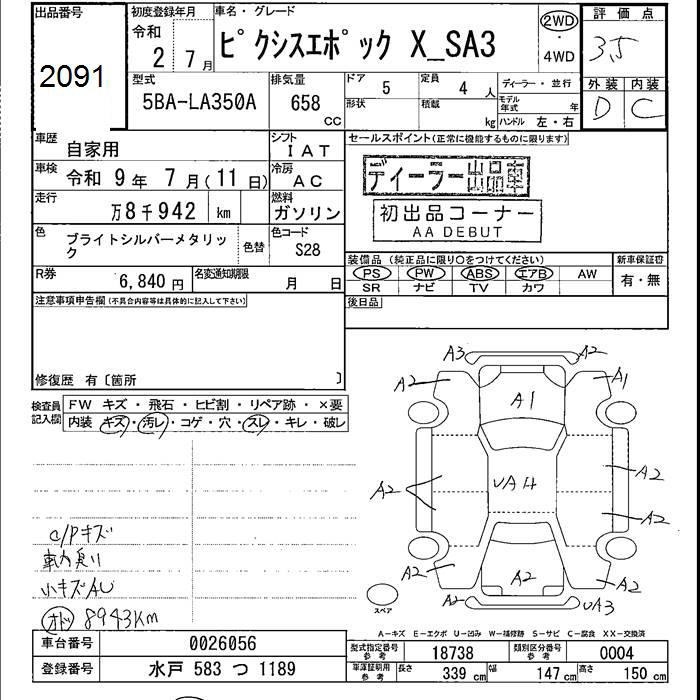 出品番号
2091
初度登録年月
令和
2 7月
車名・グレード
ピクシスエポック X_SA3
2WD
・
4WD
評価点
3.5
外装 内装
D C
型式
5BA-LA350A
排気量
658
CC
ドア 5
形状
定員 4 人
積載 kg
ディーラー・並行
モデル年式 年
ハンドル 左・右
車歴 自家用
シフト IAT
車検 令和 9年 7月(11日)
冷房 AC
走行 万8千942 km
燃料 ガソリン
色 ブライトシルバーメタリック
色替
色コード S28
R券 6,840 円
名変通知期限 月 日
セールスポイント(正常に機能するものに限ります)
ディーラー出品車
初出品コーナー
AA DEBUT
装備品 (純正品に限り○をつけてください)
新車保証書
PS PW ABS エアB AW
SR ナビ TV カワ
有・無
後日品
注意事項申告欄(不具合内容等は具体的に記入して下さい)
修復歴 有〔箇所 〕
検査員記入欄
FW キズ・飛石・ヒビ割・リペア跡・×要
内装 キズ・汚レ・コゲ・穴・スレ・キレ・破レ
C/Pキズ
車内臭い
小キズAU
オド 8943Km
A3 A2
A2 A1
A1
A2 UA4 A2
A2
A2 A2 A2
A2 UA3
スペア
A-キズ E-エクボ U-凹み W-補修跡 S-サビ C-腐食 XX-交換済
車台番号 0026056
登録番号 水戸 583 つ 1189
型式指定番号 参考 18738
類別区分番号 参考 0004
車検証明用 参考 長さ 339 cm 幅 147 cm 高さ 150 cm